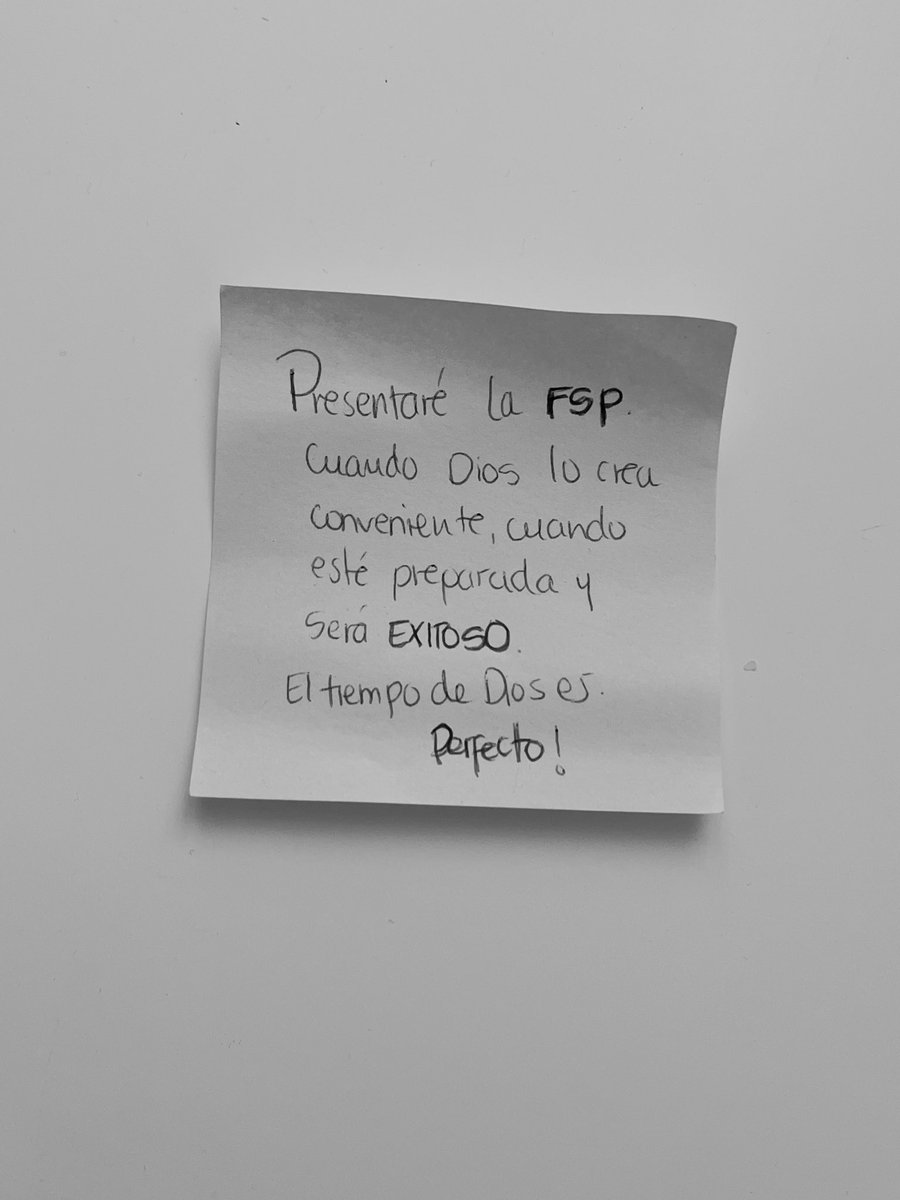 Presentaré la FSP.
cuando Dios lo crea
conveniente, cuando
esté preparada y
será EXITOSO.
El tiempo de Dios es.
Perfecto!